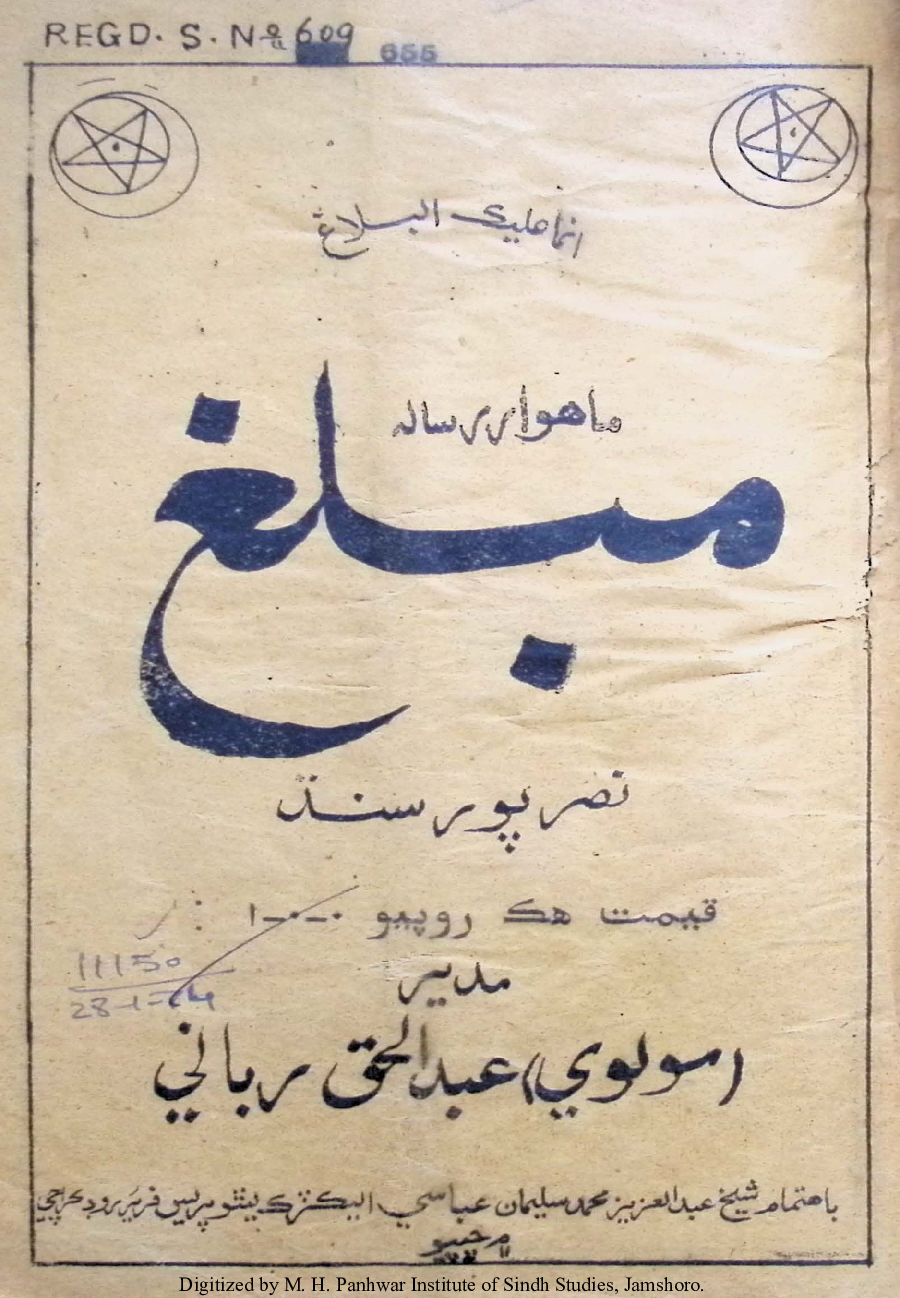 REGD. S. No 609
655
انما عليك البلاغ
ماهوار رساله
مبلغ
نصرپور سنڌ
قيمت هڪ روپيو ۰-۰-۱
11150
28-1-74
مدير
(مولوي) عبدالحق رباني
باهتمام شيخ عبدالعزيز محمد سليمان عباسي اليڪٽرڪ ليٿو پريس فريئر روڊ ڪراچي
۾ ڇپيو
Digitized by M. H. Panhwar Institute of Sindh Studies, Jamshoro.